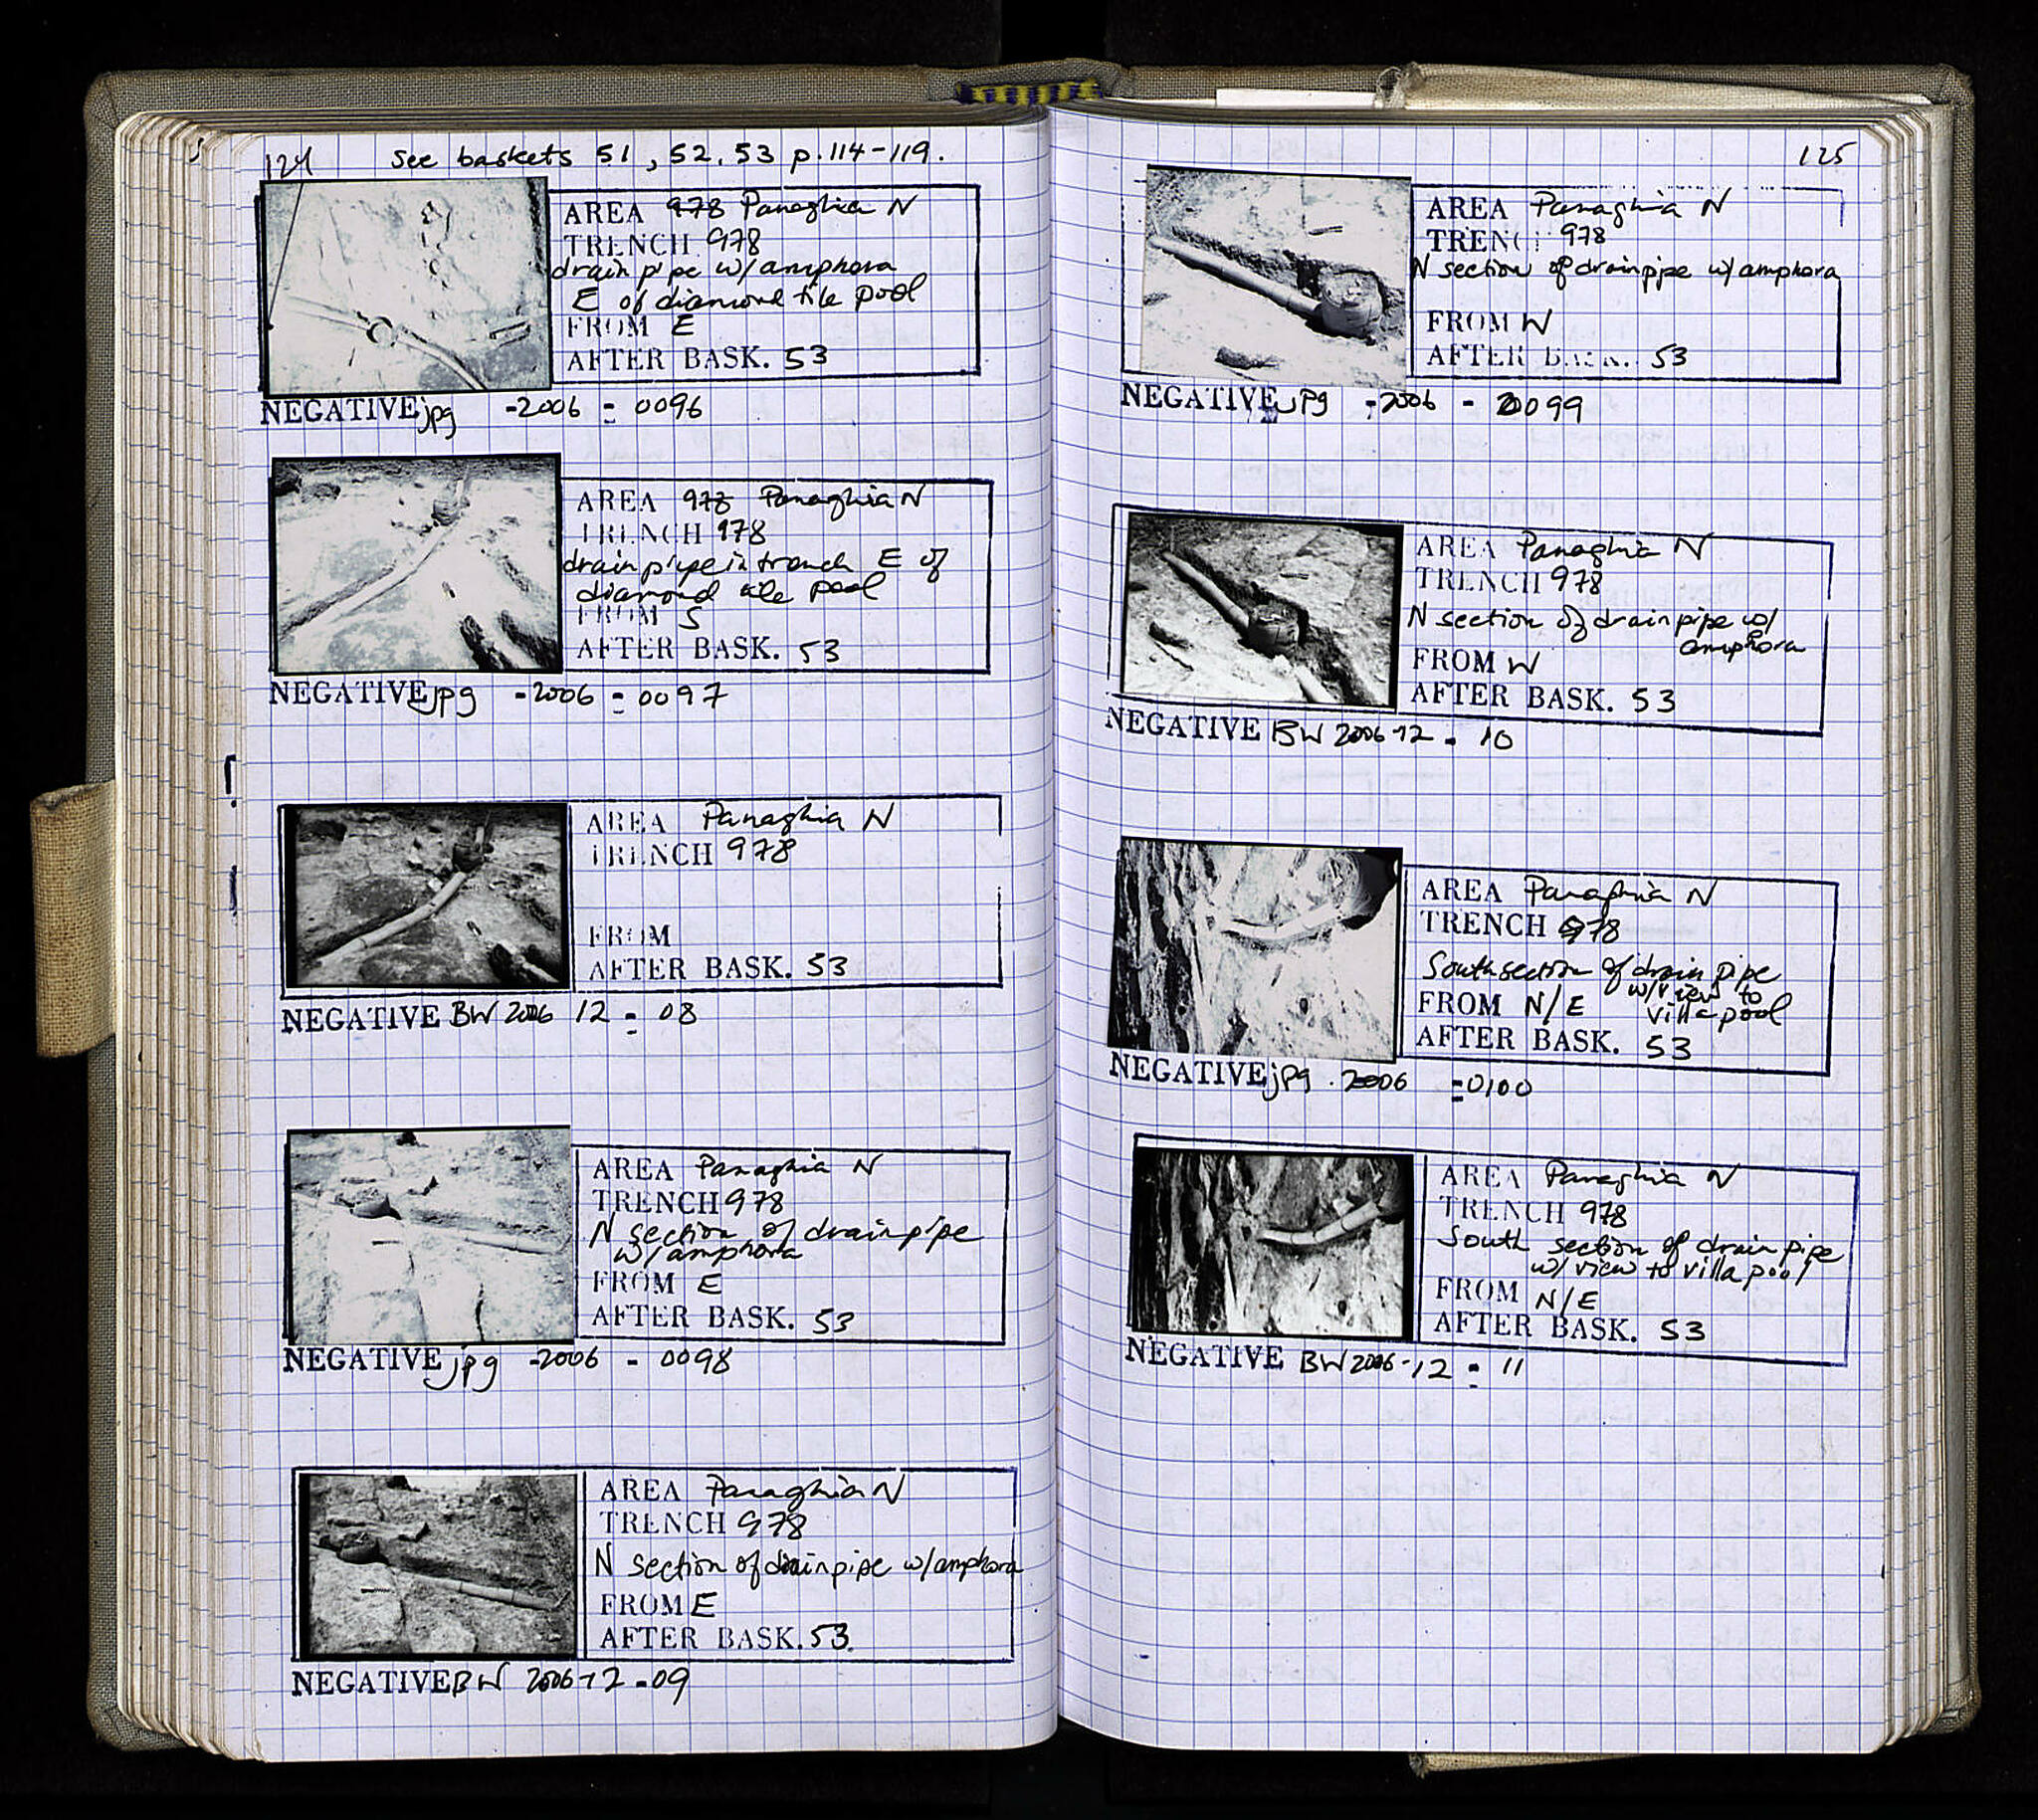 124 See baskets 51, 52, 53 p.114-119.
AREA 978 Panaghia N
TRENCH 978
drain pipe w/ amphora
E of diamond tile pool
FROM E
AFTER BASK. 53
NEGATIVE jpg -2006 - 0096
AREA 978 Panaghia N
TRENCH 978
drain pipe in trench E of
diamond tile pool
FROM S
AFTER BASK. 53
NEGATIVE jpg -2006 - 0097
AREA Panaghia N
TRENCH 978
FROM
AFTER BASK. 53
NEGATIVE BW 2006 12 - 08
AREA Panaghia N
TRENCH 978
N section of drainpipe
w/ amphora
FROM E
AFTER BASK. 53
NEGATIVE jpg -2006 - 0098
AREA Panaghia N
TRENCH 978
N section of drainpipe w/ amphora
FROM E
AFTER BASK. 53.
NEGATIVE BW 2006-12-09
125
AREA Panaghia N
TRENCH 978
N section of drainpipe w/ amphora
FROM W
AFTER BASK. 53
NEGATIVE jpg -2006 - 0099
AREA Panaghia N
TRENCH 978
N section of drain pipe w/
amphora
FROM W
AFTER BASK. 53
NEGATIVE BW 2006-12 - 10
AREA Panaghia N
TRENCH 978
South section of drain pipe
w/view to
FROM N/E villa pool
AFTER BASK. 53
NEGATIVE jpg . 2006 - 0100
AREA Panaghia N
TRENCH 978
South section of drain pipe
w/ view to villa pool
FROM N/E
AFTER BASK. 53
NEGATIVE BW 2006-12 - 11